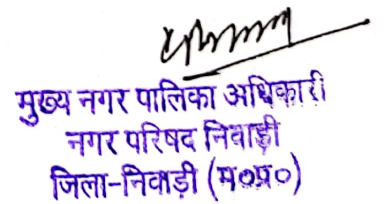 मुख्य नगर पालिका अधिकारी
नगर परिषद निवाड़ी
जिला-निवाड़ी (म०प्र०)